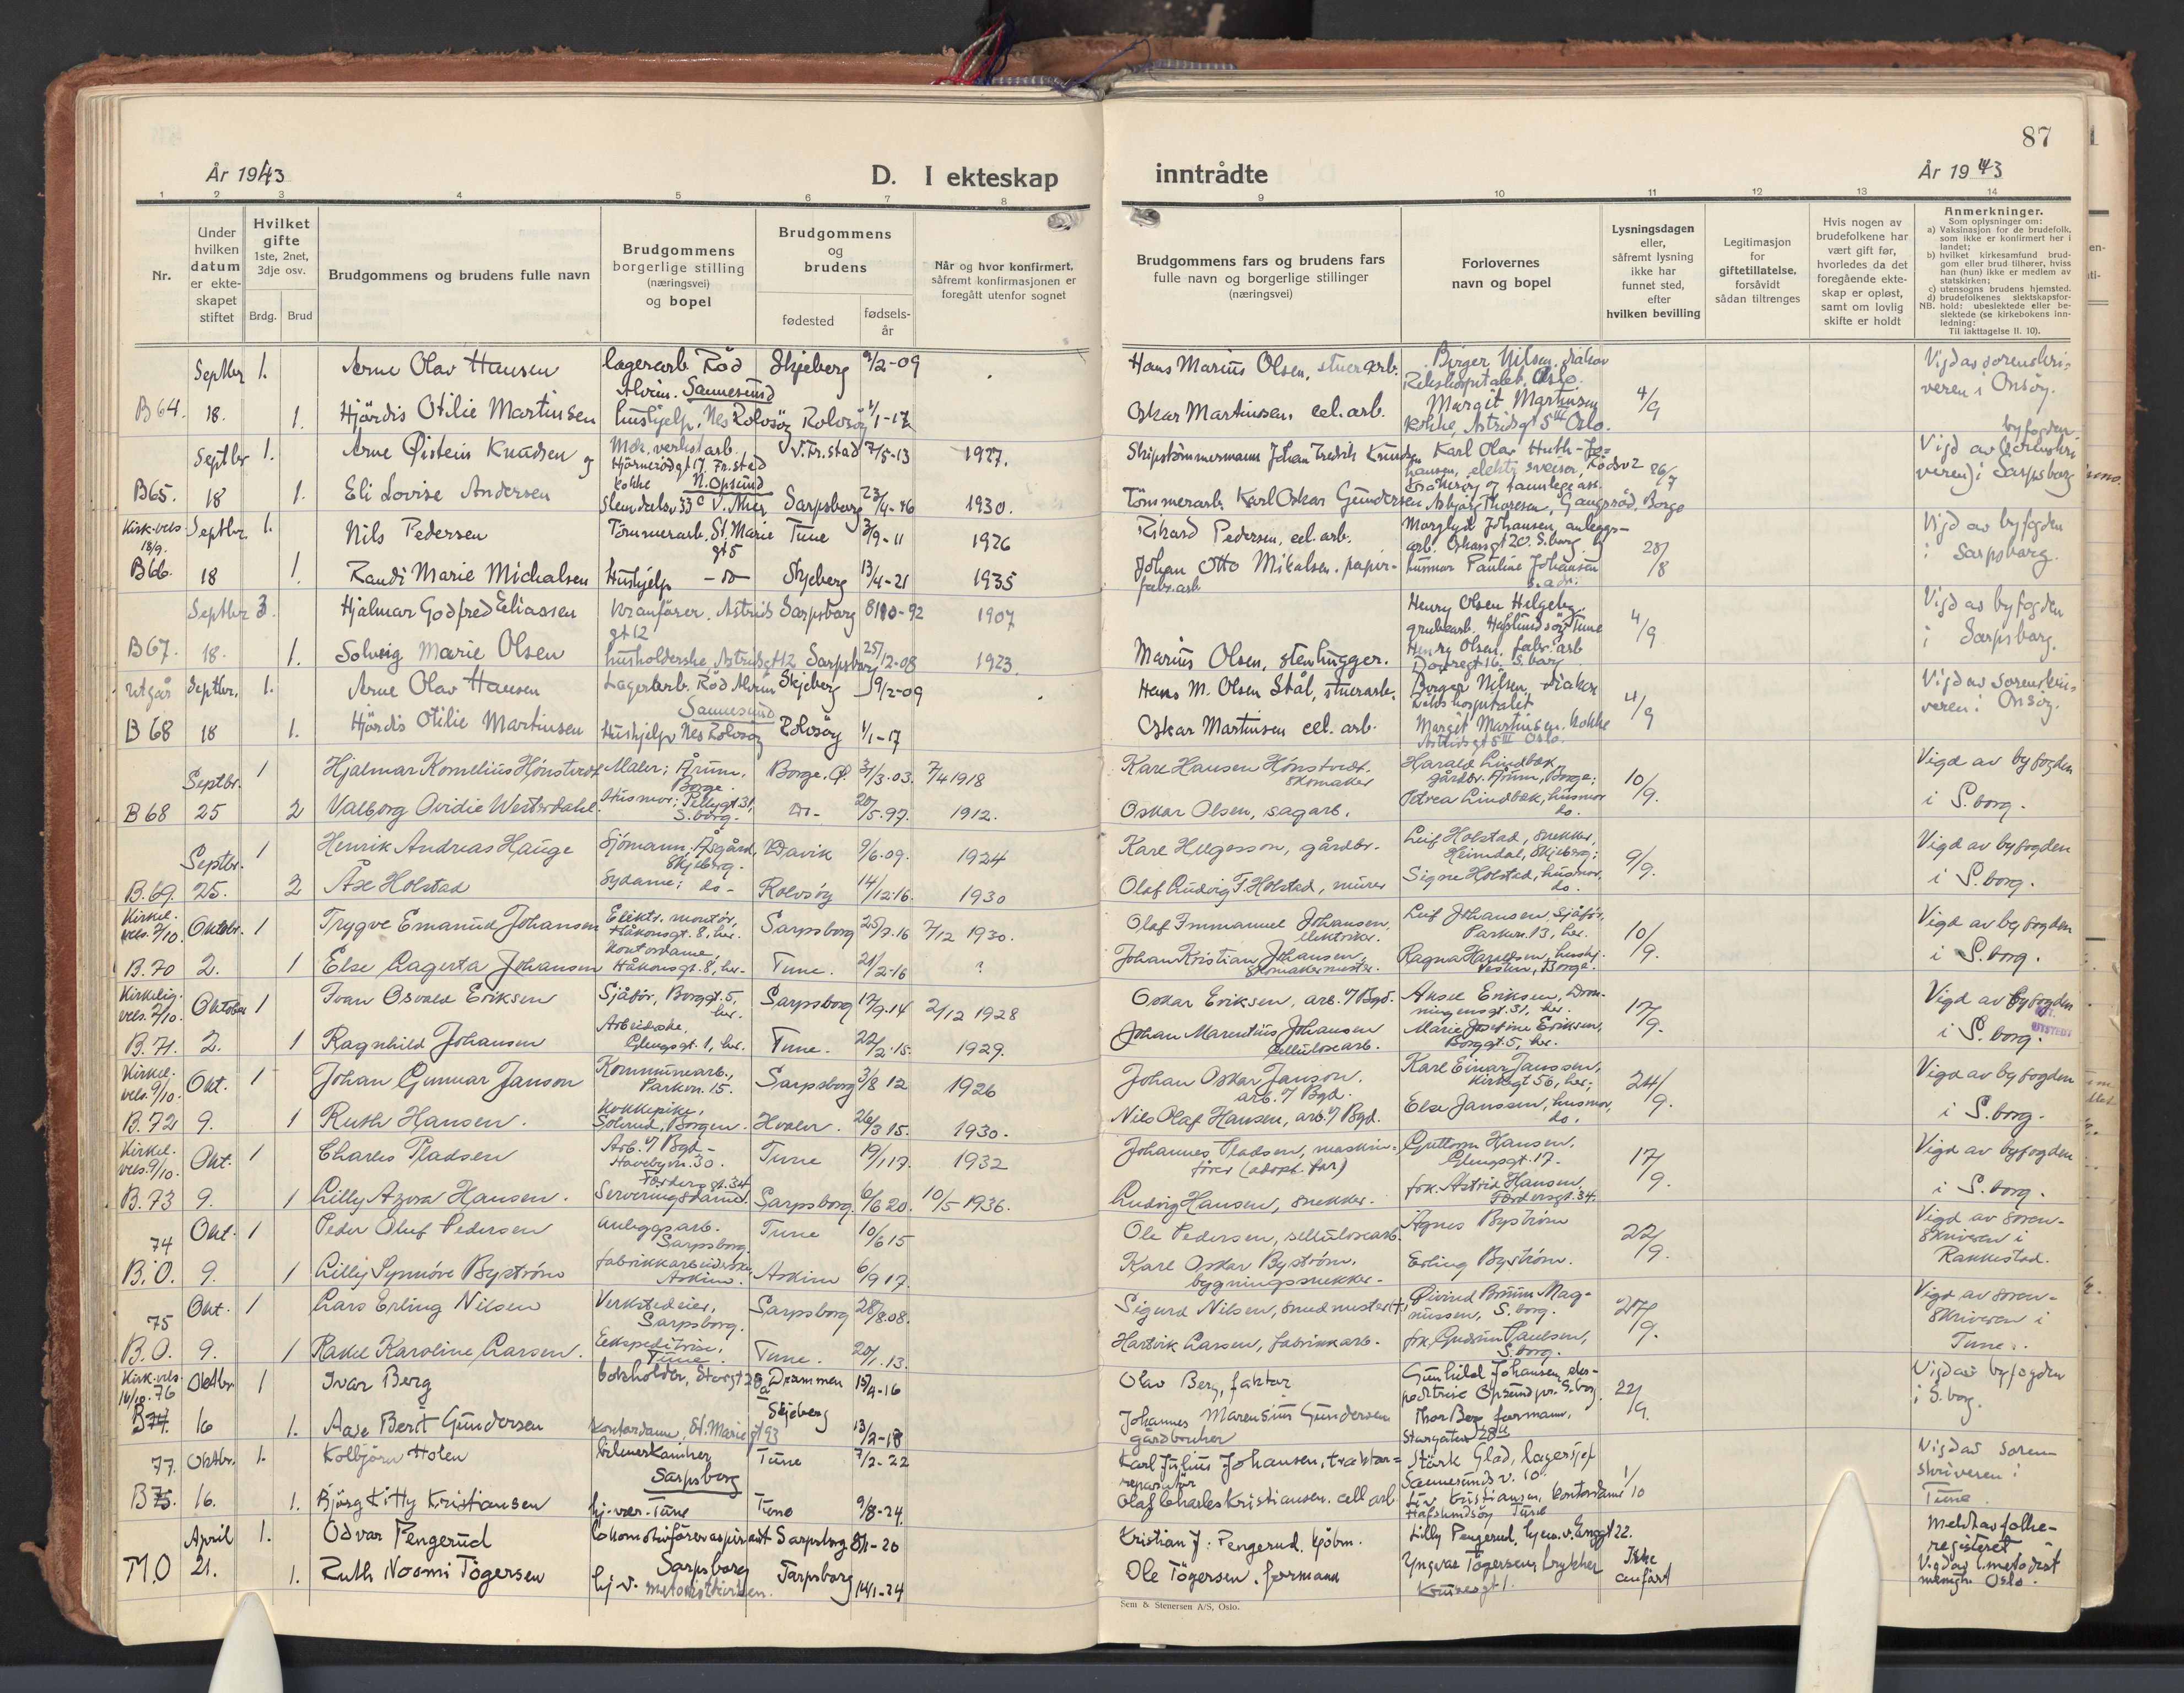 87
År 1943
D. I ekteskap
inntrådte
År 1943
1 2 3 4 5 6 7 8 9 10 11 12 13 14
Nr.
Under hvilken datum er ekte-skapet stiftet
Hvilket gifte
1ste, 2net, 3dje osv.
Brdg. Brud
Brudgommens og brudens fulle navn
Brudgommens borgerlige stilling (næringsvei) og bopel
Brudgommens og brudens
fødested
fødsels-år
Når og hvor konfirmert, såfremt konfirmasjonen er foregått utenfor sognet
Brudgommens fars og brudens fars fulle navn og borgerlige stillinger (næringsvei)
Forlovernes navn og bopel
Lysningsdagen eller, såfremt lysning ikke har funnet sted, efter hvilken bevilling
Legitimasjon for giftetillatelse, forsåvidt sådan tiltrenges
Hvis nogen av brudefolkene har vært gift før, hvorledes da det foregående ekte-skap er opløst, samt om lovlig skifte er holdt
Anmerkninger.
Som oplysninger om:
a) Vaksinasjon for de brudefolk, som ikke er konfirmert her i landet;
b) hvilket kirkesamfund brud-gom eller brud tilhører, hviss han (hun) ikke er medlem av statskirken;
c) utensogns brudens hjemsted.
d) brudefolkenes slektskapsfor-hold: ubeslektede eller be-slektede (se kirkebokens inn-ledning:
NB.
Til iakttagelse II. 10).
Septbr 1. Arne Olav Hansen lagerarb. Röd Skjeberg 9/2-09 Hans Marius Olsen, stuerarb. Birger Nilsen, diakon Vigd av sorenskri-
Alvim. Sannesund Rikshospitalet, Oslo. 4/9 veren i Onsöy.
B64. 18. 1. Hjördis Otilie Martinsen hushjelp, Nes Rolvsöy Rolvsöy 1/1-17 Oskar Martinsen, cel.arb. Margit Martinsen
kokke, Astridsgt 5 III Oslo.
Septbr 1. Arne Øistein Knudsen Mek. verkst.arb. V. Fr.stad 7/5-13 1927. Skipstömmermann Johan Fredrik Knudsen Karl Olav Huth-Jo- byfogden
og Hjörnerödgt 17 Fr.stad hansen, elektr. sveiser, Rödsv 2 26/7 Vigd av (sorenskri
B65. 18 1. Eli Lovise Andersen kokke N. Opsund Sarpsborg 23/4- 1930. Tömmerarb. Karl Oskar Gundersen veren) i Sarpsborg
Asbjörg Thoresen, Borge
Kirk. vels 18/9. Septbr. 1. Nils Pedersen Tömmerarb. St. Marie gt 5 Tune 3/9-11 1926 Rikard Pedersen, cel.arb. Johansen, anleggs- Vigd av byfogden
arb. Oskarsgt 20. S.borg. 28/8 i Sarpsborg.
B66. 18 1 Randi Marie Michalsen Hushjelp -"- Skjeberg 13/4-21 1935 Johan Otto Mikalsen. papir- husmor Pauline Johansen
fabr.arb s.adr.
Septbr 3. Hjalmar Godfred Eliassen Kranförer. Astrids gt 12 Sarpsborg 8/10-92 1907 Henry Olsen Helgeby. Vigd av byfogden
grubearb. Hafslundsöy Tune 4/9 i Sarpsborg.
B67. 18. 1. Solveig Marie Olsen husholderske, Astridsgt 12 Sarpsborg 25/12-08 1923. Marius Olsen, stenhugger. Henry Olsen, fabr.arb
S.borg
utgår Septbr. 1. Arne Olav Hansen Lagerarb. Röd Alvim Skjeberg 9/2-09 Hans M. Olsen Stål, stuerarb. Birger Nilsen, diakon Vigd av sorenskri-
Sannesund Rikshospitalet 4/9 veren i Onsöy.
B 68 18 1. Hjördis Otilie Martinsen Hushjelp Nes Rolvsöy Rolvsöy 1/1-17 Oskar Martinsen cel. arb. Margit Martinsen. kokke
Astridsgt 5 III Oslo.
Septbr. 1 Hjalmar Kornelius Hönstvedt Maler; Årum, Borge. Borge. Ø. 31/3.03. 7/4 1918 Karl Hansen Hönstvedt. skomaker Harald Lindbæk, gårdbr. Årum, Borge; 10/9. Vigd av byfogden
B 68 25 2 Valborg Ovidie Westerdahl. Husmor; Pellygt 31, S.borg. do- 20/5.97. 1912. Oskar Olsen, sagarb. Petrea Lindbæk, husmor do. i S.borg.
Septbr. 1 Henrik Andreas Hauge Sjömann, Åsgård, Skjeberg. Davik 9/6.09. 1924 Karl Helgesson, gårdbr. Leif Holstad, snekker, Heimdal, Skjeberg; 9/9. Vigd av byfogden
B.69. 25. 2 Åse Holstad Sydame; do- Rolvsöy 14/12.16. 1930 Olaf Ludvig T. Holstad, murer Signe Holstad, husmor, do. i S.borg.
Kirkel. vels. 2/10. Oktobr. 1 Trygve Emanuel Johansen Elektr. montör, Håkonsgt. 8, her. Sarpsborg 25/7.16 7/12 1930. Olaf Immanuel Johansen, elektriker. Leif Johansen, sjåför, Parkvn. 13, her. 10/9. Vigd av byfogden
B.70 2. 1 Else Lagerta Johansen Kontordame, Håkonsgt. 8, her- Tune. 21/2-16 ? Johan Kristian Johansen, skomakermester. Ragna Haraldsen, Borge. i S.borg.
Kirkelig. vels. 2/10. Oktober 1 Ivan Osvald Eriksen Sjåför, Borggt. 5, her. Sarpsborg 17/9.14 2/12 1928 Oskar Eriksen, arb. v/ Bgd. Aksel Eriksen, Dron-ningensgt. 51, her. 17/9. Vigd av byfogden
B.71. 2. 1 Ragnhild Johansen Arbeiderske, Glengsgt. 1, her. Tune. 22/2.15. 1929. Johan Marentius Johansen cellulosearb. Marie Josefine Eriksen, Borggt. 5, her. i S.borg.
UTSTEDT
Kirkel. vels. 9/10. Okt. 1 Johan Gunnar Janson Kommunearb., Parkvn. 15. Sarpsborg 3/8 12 1926 Johan Oskar Janson. arb. v/ Bgd. Karl Einar Janssen, Kirkegt 56, her; 24/9. Vigd av byfogden
B.72 9. 1 Ruth Hansen. Kokkepike, Solerud, Borgen. Hvaler. 26/3 15. 1930. Nils Olaf Hansen, arb. v/ Bgd. Else Janssen, husmor, do. i S.borg.
Kirkel. vels. 9/10. Okt. 1 Charles Pladsen Arb. v/ Bgd- Havebyvn. 30. Tune 19/1 17. 1932 Johannes Pladsen, maskin-förer (adopt. far) Guttorm Hansen, Glengsgt. 17. 17/9. Vigd av byfogden
B.73 9. 1 Lilly Azora Hansen. Fördersgt. 34 Serveringsdame. Sarpsborg. 6/6 20. 10/5 1936. Ludvig Hansen, snekker. frk. Astrid Hansen, Fördersgt. 34. i S.borg.
74 Okt. 1 Peder Oluf Pedersen anleggsarb. Sarpsborg Tune 10/6 15 Ole Pedersen, cellulosearb. Agnes Byström 22/9. Vigd av soren-
B.O. 9. 1 Lilly Synnöve Byström fabrikkarbeiderske, Askim. Askim 6/9 17. Karl Oskar Byström, bygningssnekker- Erling Byström. skriveren i Rakkestad.
75 Okt. 1 Lars Erling Nilsen Verkstedeier, Sarpsborg. Sarpsborg 28/8.08. Sigurd Nilsen, smedmester(†) Øivind Brunn Mag-nussen, S.borg. 27/9. Vigd av soren-
B.O. 9. 1 Rakel Karoline Larsen. Ekspeditrise, Tune. Tune. 20/1.13. Hartvik Larsen, fabrikkarb. frk. Gudrun Paulsen, S.borg. skriveren i Tune.
Kirk. vels. 16/10. 76 Oktbr 1 Ivar Berg bokholder, Storgt 28 a Drammen 15/9-16 Olav Berg, faktor Gunhild Johansen, eks-peditrise Opsund pr. S.borg. 22/9. Vigd av byfogden
B74. 16 1. Aase Berit Gundersen kontordame, St. Marie gt 93 Skjeberg 13/2-18 Johannes Marensius Gundersen gårdbruker Thor Berg formann, Storgaten 28 a i S.borg.
77. Oktbr. 1. Kolbjörn Holen Sarpsborg Tune 7/2-22 Karl Julius Johansen, traktor-reparatör Stärk Glad, lagersjef Sannesundsv. 10. 1/10 Vigd av soren
B75. 16. 1. Björg Kitty Kristiansen hj.vær. Tune Tune 9/8-24. Olaf Charles Kristiansen. cell arb Liv Kristiansen, kontordame Hafslundsöy Tune skriveren i Tune
April 1. Odvar Pengerud Lokomotivföreraspirant Sarpsborg Sarpsborg 8/1-20 Kristian J. Pengerud. kjöbm. Lilly Pengerud, 22. Meldt av folke-registeret
M.O 21. 1. Ruth Noomi Tögersen hj.v. metodistkirken. Sarpsborg 14/1-24 Ole Tögersen. formann Yngvar Tögersen, trykker Ikke anfört Vigd av i metodist menigh. Oslo.
Sem & Stenersen A/S, Oslo.